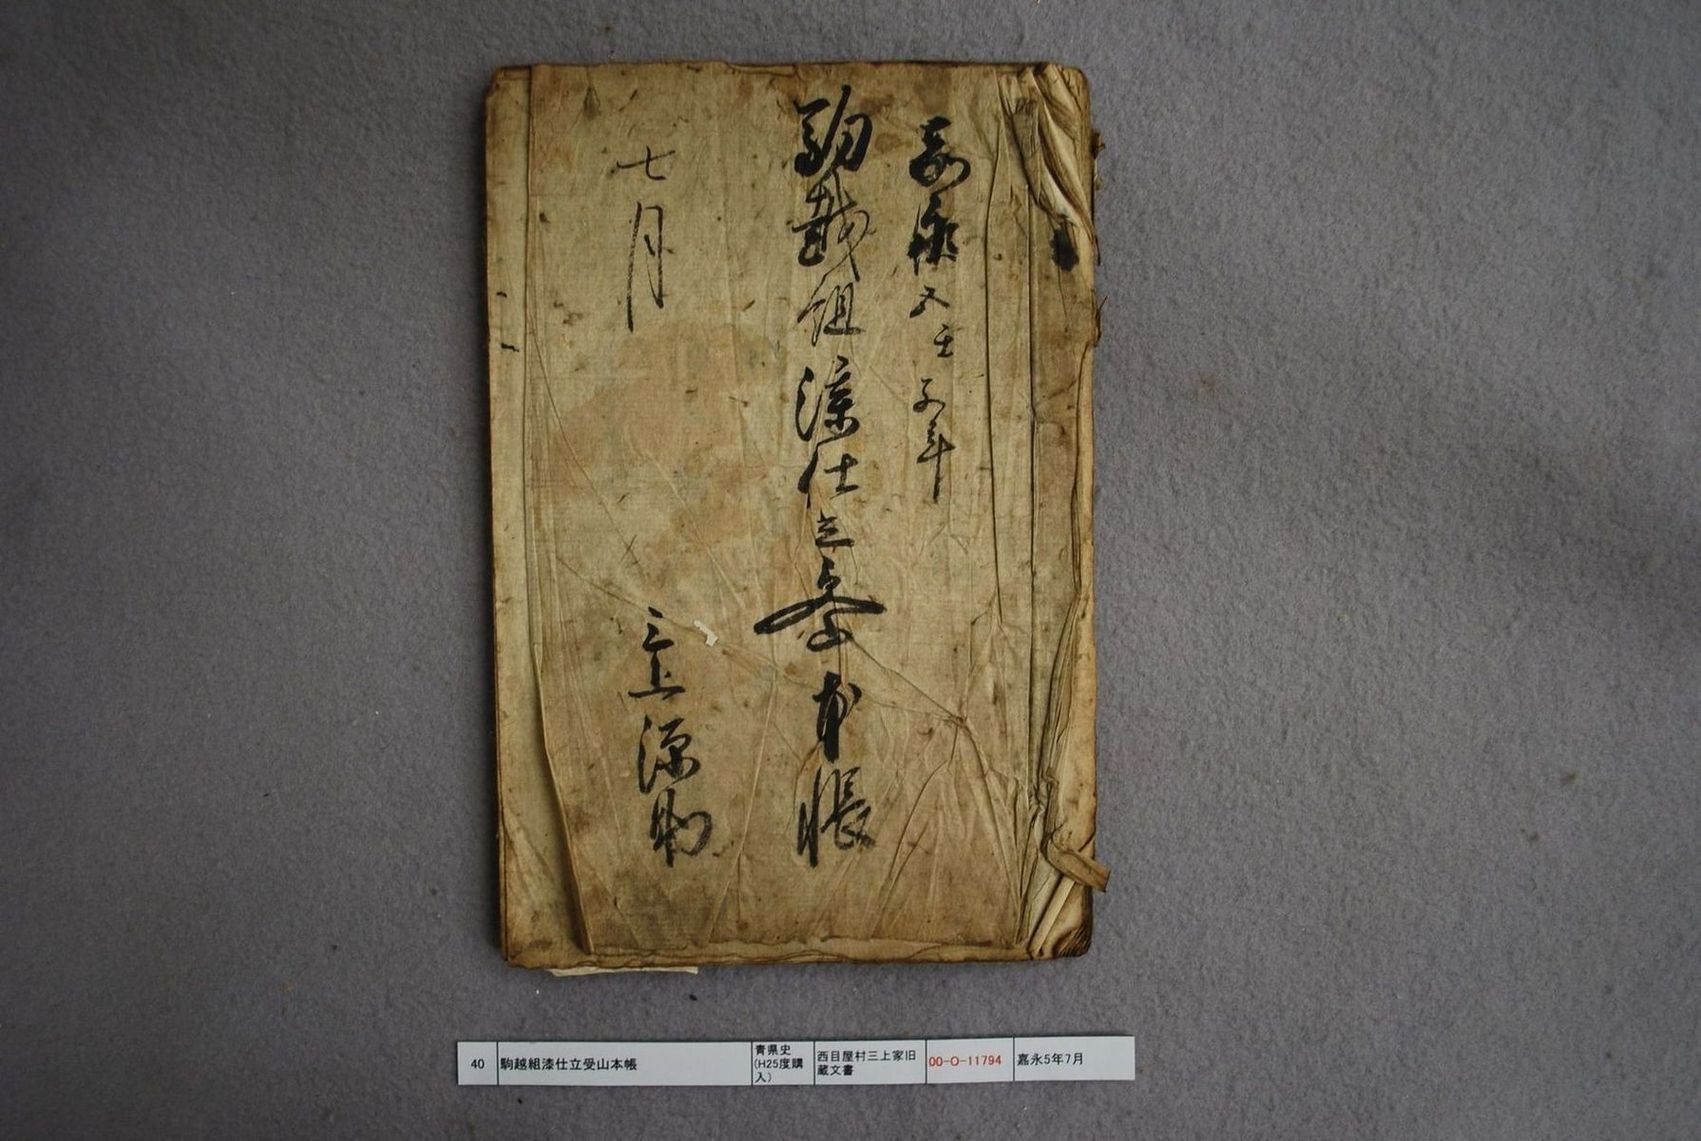 嘉永五壬子年
駒越組漆仕立受山本帳
七月
三上源助
40 駒越組漆仕立受山本帳 青県史(H25度購入) 西目屋村三上家旧蔵文書 00-O-11794 嘉永5年7月